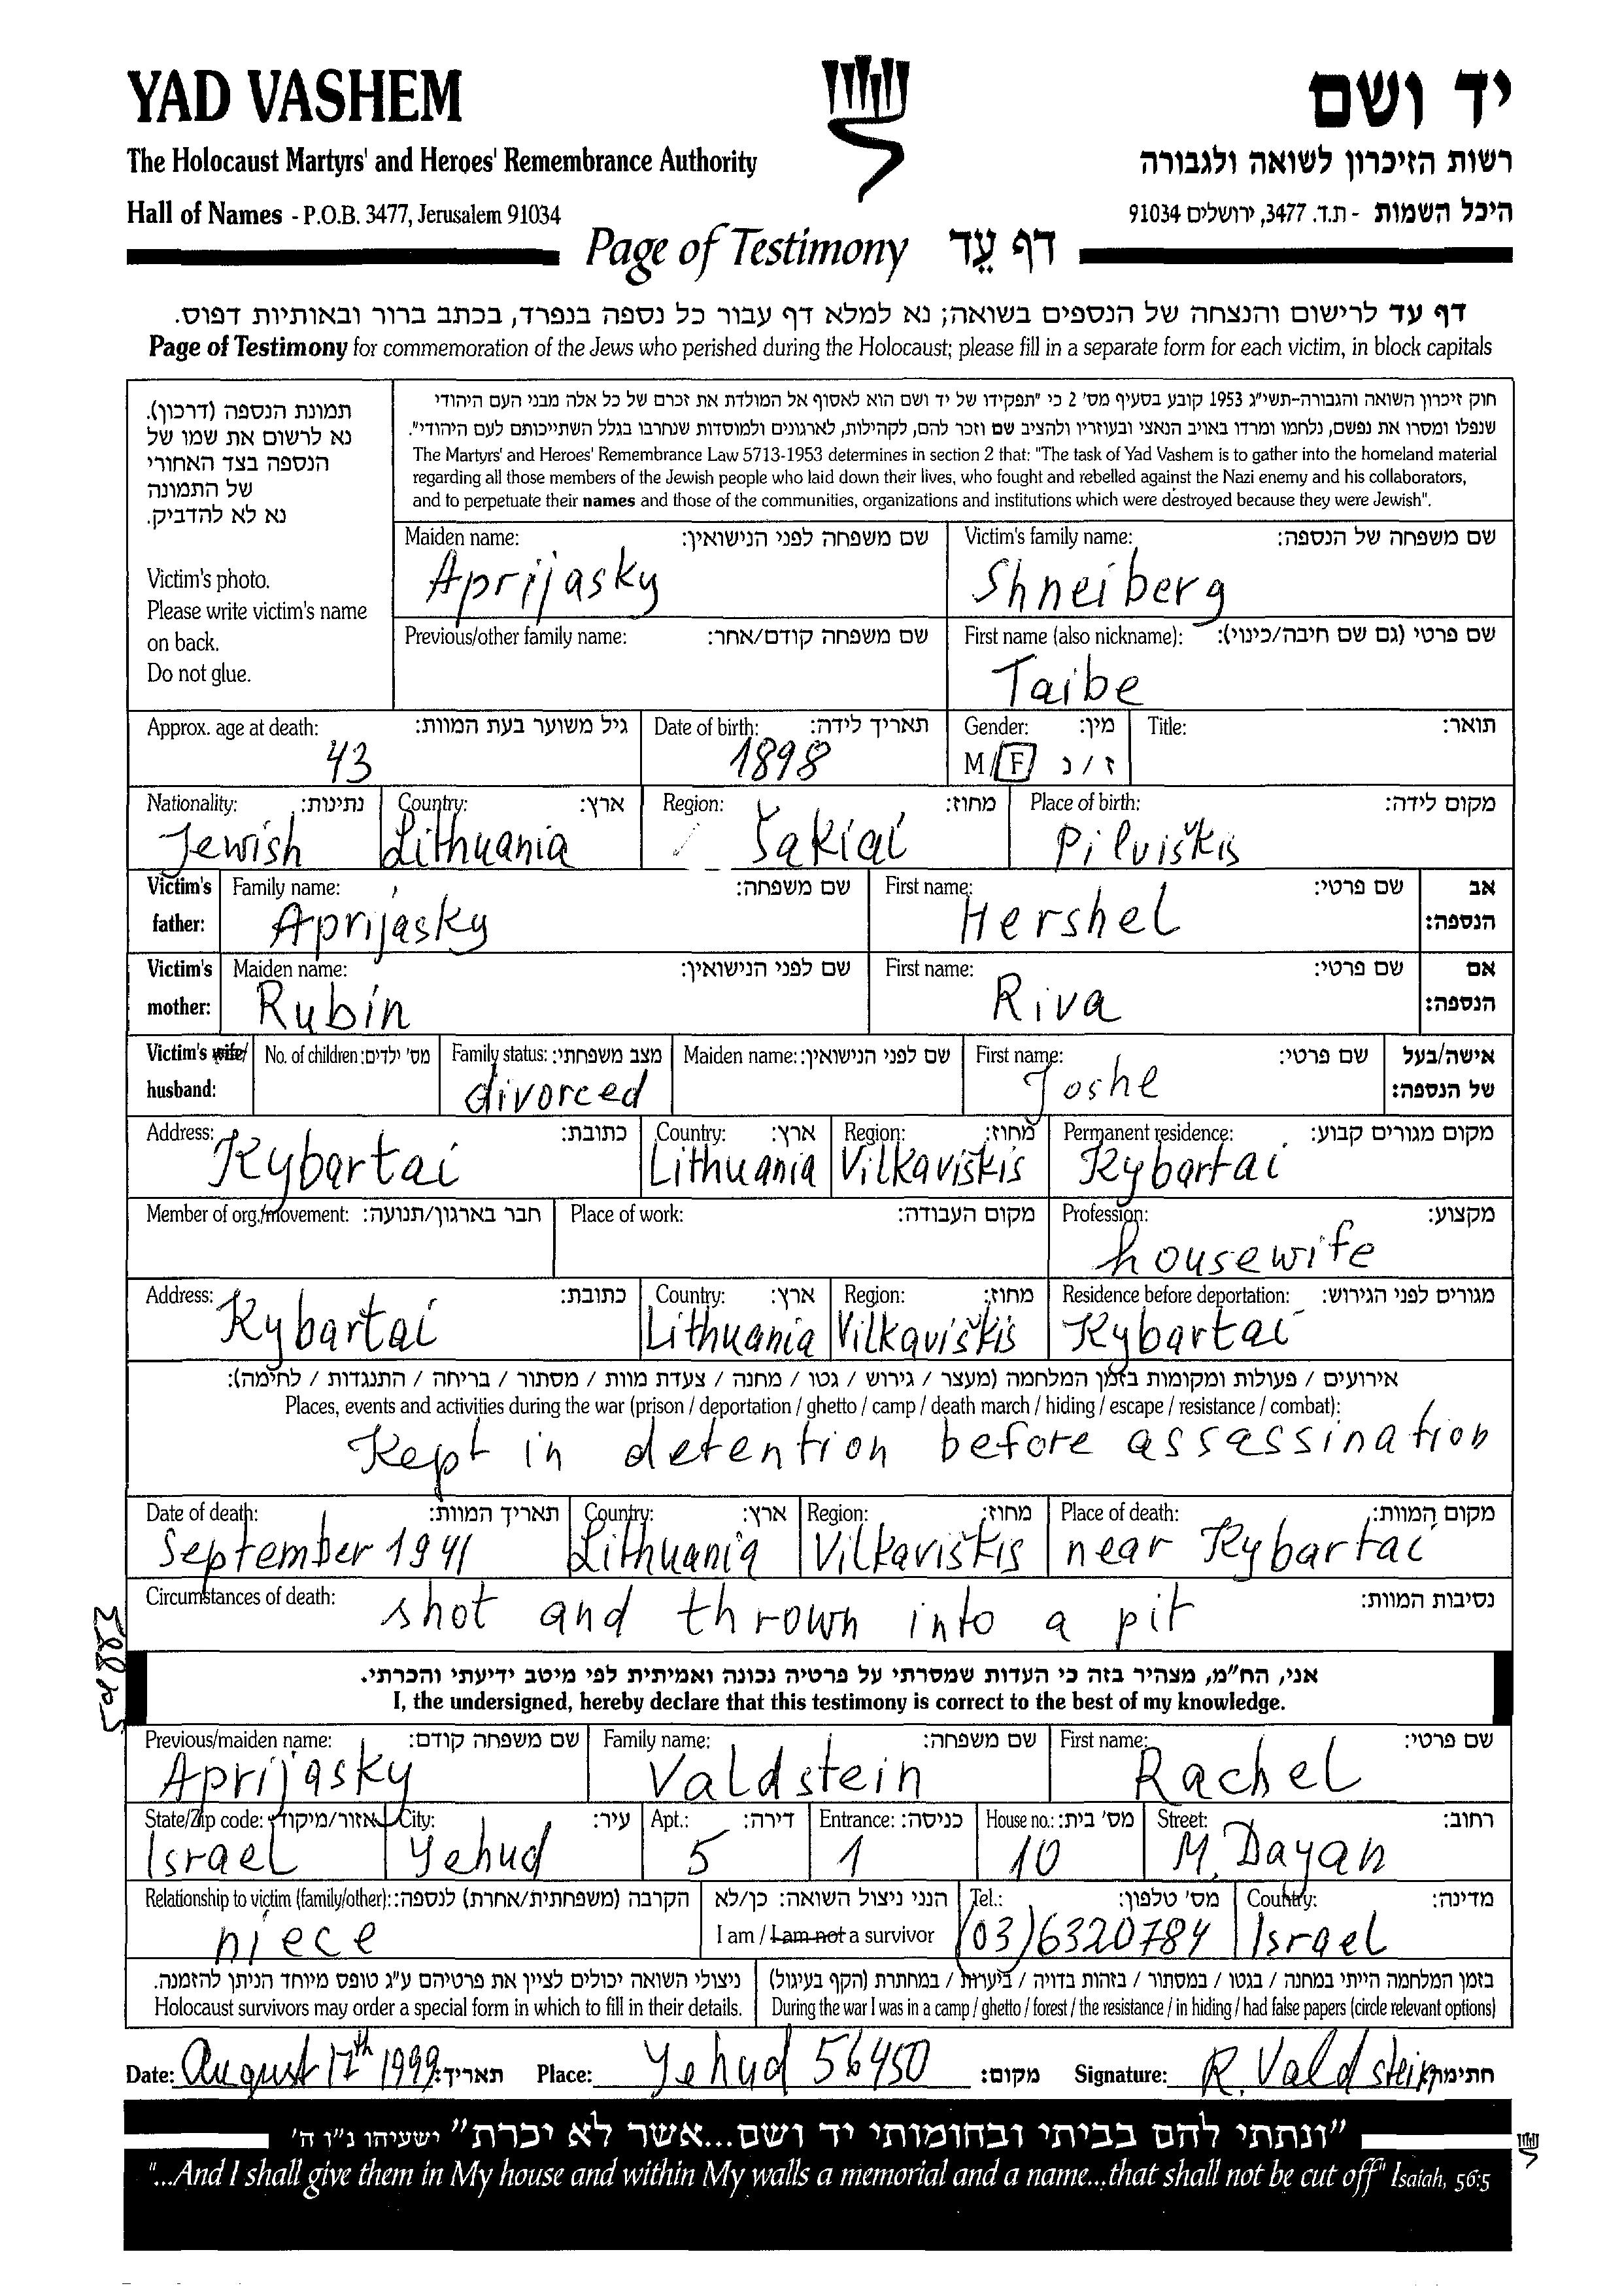 YAD VASHEM
יד ושם
The Holocaust Martyrs' and Heroes' Remembrance Authority
רשות הזיכרון לשואה ולגבורה
Hall of Names - P.O.B. 3477, Jerusalem 91034
היכל השמות - ת.ד. 3477, ירושלים 91034
Page of Testimony דף עֵד
דף עד לרישום והנצחה של הנספים בשואה; נא למלא דף עבור כל נספה בנפרד, בכתב ברור ובאותיות דפוס.
Page of Testimony for commemoration of the Jews who perished during the Holocaust; please fill in a separate form for each victim, in block capitals
תמונת הנספה (דרכון).
נא לרשום את שמו של
הנספה בצד האחורי
של התמונה
נא לא להדביק.
Victim's photo.
Please write victim's name
on back.
Do not glue.
חוק זיכרון השואה והגבורה-תשי"ג 1953 קובע בסעיף מס' 2 כי "תפקידו של יד ושם הוא לאסוף אל המולדת את זכרם של כל אלה מבני העם היהודי
שנפלו ומסרו את נפשם, נלחמו ומרדו באויב הנאצי ובעוזריו ולהציב שם וזכר להם, לקהילות, לארגונים ולמוסדות שנחרבו בגלל השתייכותם לעם היהודי".
The Martyrs' and Heroes' Remembrance Law 5713-1953 determines in section 2 that: "The task of Yad Vashem is to gather into the homeland material
regarding all those members of the Jewish people who laid down their lives, who fought and rebelled against the Nazi enemy and his collaborators,
and to perpetuate their names and those of the communities, organizations and institutions which were destroyed because they were Jewish".
Maiden name: שם משפחה לפני הנישואין: Victim's family name: שם משפחה של הנספה:
Aprijasky Shneiberg
Previous/other family name: שם משפחה קודם/אחר: First name (also nickname): שם פרטי (גם שם חיבה/כינוי):
Taibe
Approx. age at death: גיל משוער בעת המוות: Date of birth: תאריך לידה: Gender: מין: Title: תואר:
43 1898 M/F ז/נ
Nationality: נתינות: Country: ארץ: Region: מחוז: Place of birth: מקום לידה:
Jewish Lithuania Šakiai Pilviškis
Victim's father: Family name: שם משפחה: First name: שם פרטי: אב הנספה:
Aprijasky Hershel
Victim's mother: Maiden name: שם לפני הנישואין: First name: שם פרטי: אם הנספה:
Rubin Riva
Victim's wife/ husband: No. of children: מס' ילדים: Family status: מצב משפחתי: Maiden name: שם לפני הנישואין: First name: שם פרטי: אישה/בעל של הנספה:
divorced Joshe
Address: כתובת: Country: ארץ: Region: מחוז: Permanent residence: מקום מגורים קבוע:
Kybartai Lithuania Vilkaviškis Kybartai
Member of org./movement: חבר בארגון/תנועה: Place of work: מקום העבודה: Profession: מקצוע:
housewife
Address: כתובת: Country: ארץ: Region: מחוז: Residence before deportation: מגורים לפני הגירוש:
Kybartai Lithuania Vilkaviškis Kybartai
אירועים / פעולות ומקומות בזמן המלחמה (מעצר / גירוש / גטו / מחנה / צעדת מוות / מסתור / בריחה / התנגדות / לחימה):
Places, events and activities during the war (prison / deportation / ghetto / camp / death march / hiding / escape / resistance / combat):
Kept in detention before assassination
Date of death: תאריך המוות: Country: ארץ: Region: מחוז: Place of death: מקום המוות:
September 1941 Lithuania Vilkaviškis near Kybartai
Circumstances of death: נסיבות המוות:
shot and thrown into a pit
אני, הח"מ, מצהיר בזה כי העדות שמסרתי על פרטיה נכונה ואמיתית לפי מיטב ידיעתי והכרתי.
I, the undersigned, hereby declare that this testimony is correct to the best of my knowledge.
Previous/maiden name: שם משפחה קודם: Family name: שם משפחה: First name: שם פרטי:
Aprijasky Valdstein Rachel
State/Zip code: אזור/מיקוד: City: עיר: Apt.: דירה: Entrance: כניסה: House no.: מס' בית: Street: רחוב:
Israel Yehud 5 1 10 M. Dayan
Relationship to victim (family/other): הקרבה (משפחתית/אחרת) לנספה: הנני ניצול השואה: כן/לא Tel.: מס' טלפון: Country: מדינה:
niece I am / I am not a survivor (03)6320784 Israel
ניצולי השואה יכולים לציין את פרטיהם ע"ג טופס מיוחד הניתן להזמנה.
Holocaust survivors may order a special form in which to fill in their details.
בזמן המלחמה הייתי במחנה / בגטו / במסתור / בזהות בדויה / ביערות / במחתרת (הקף בעיגול)
During the war I was in a camp / ghetto / forest / the resistance / in hiding / had false papers (circle relevant options)
Date: August 17th 1999 תאריך: Place: Yehud 56450 מקום: Signature: R. Valdstein חתימה
"ונתתי להם בביתי ובחומותי יד ושם...אשר לא יכרת" ישעיהו נ"ו ה'
"...And I shall give them in My house and within My walls a memorial and a name...that shall not be cut off" Isaiah, 56:5